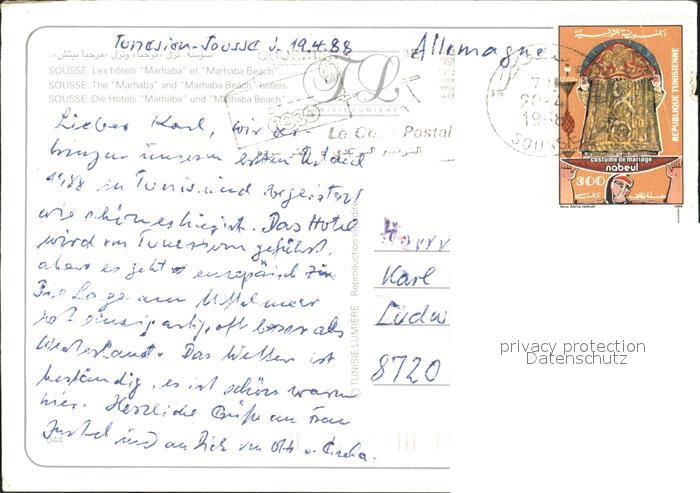 Tunesien-Sousse d. 19.4.88
Allemagne
سوسة. نزل «مرحبا» ونزل «مرحبا بيتش».
SOUSSE. Les hôtels "Marhaba" et "Marhaba Beach".
SOUSSE. The "Marhaba" and "Marhaba Beach" hotels.
SOUSSE. Die Hotels "Marhaba" und "Marhaba Beach".
TL
TUNISIE LUMIERE
Le Code Postal
20-4
1988
SOUSSE
REPUBLIQUE TUNISIENNE
costume de mariage
nabeul
300
1988
Lieber Karl, wir ver-
bringen unseren ersten Urlaub
1988 in Tunis. und begeistert
wie schön es hier ist. Das Hotel
wird von Tunesiern geführt,
aber es geht europäisch zu.
Die Lage am Mittelmeer
ist einzigartig, oft besser als
Das Wetter ist
beständig, es ist schön warm
hier. Herzliche Grüße an Frau
und an Dich von
© TUNISIE LUMIERE Reproduction interdite
Herrn
Karl
Ludw
8720
044
privacy protection
Datenschutz